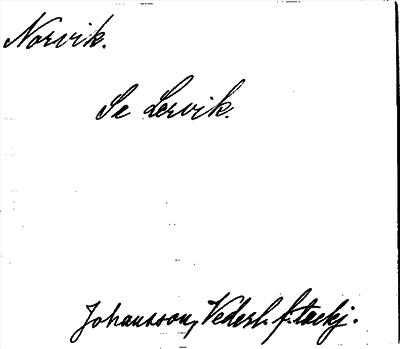 Norvik.
Se Lervik.
Johansson, Vederl. f. tackj.